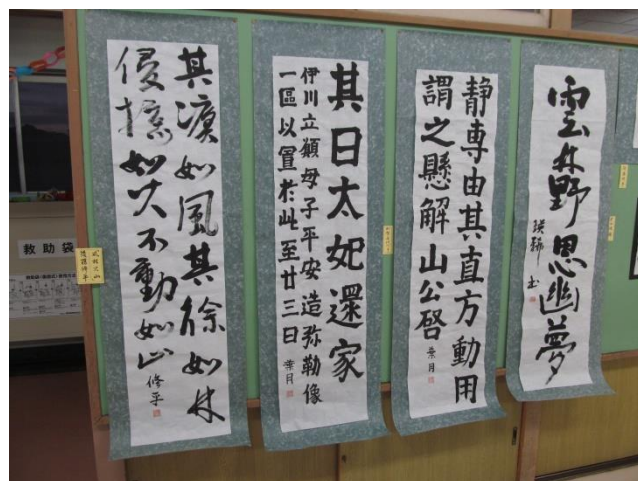 雲林野思幽夢
瑛稀 書
静専由其直方動用
謂之懸解山公啓
葉月
其日太妃還家
伊川立願母子平安造弥勒像
一區以置於此至廿三日 葉月
其疾如風其徐如林
侵掠如火不動如山 修平
救助袋